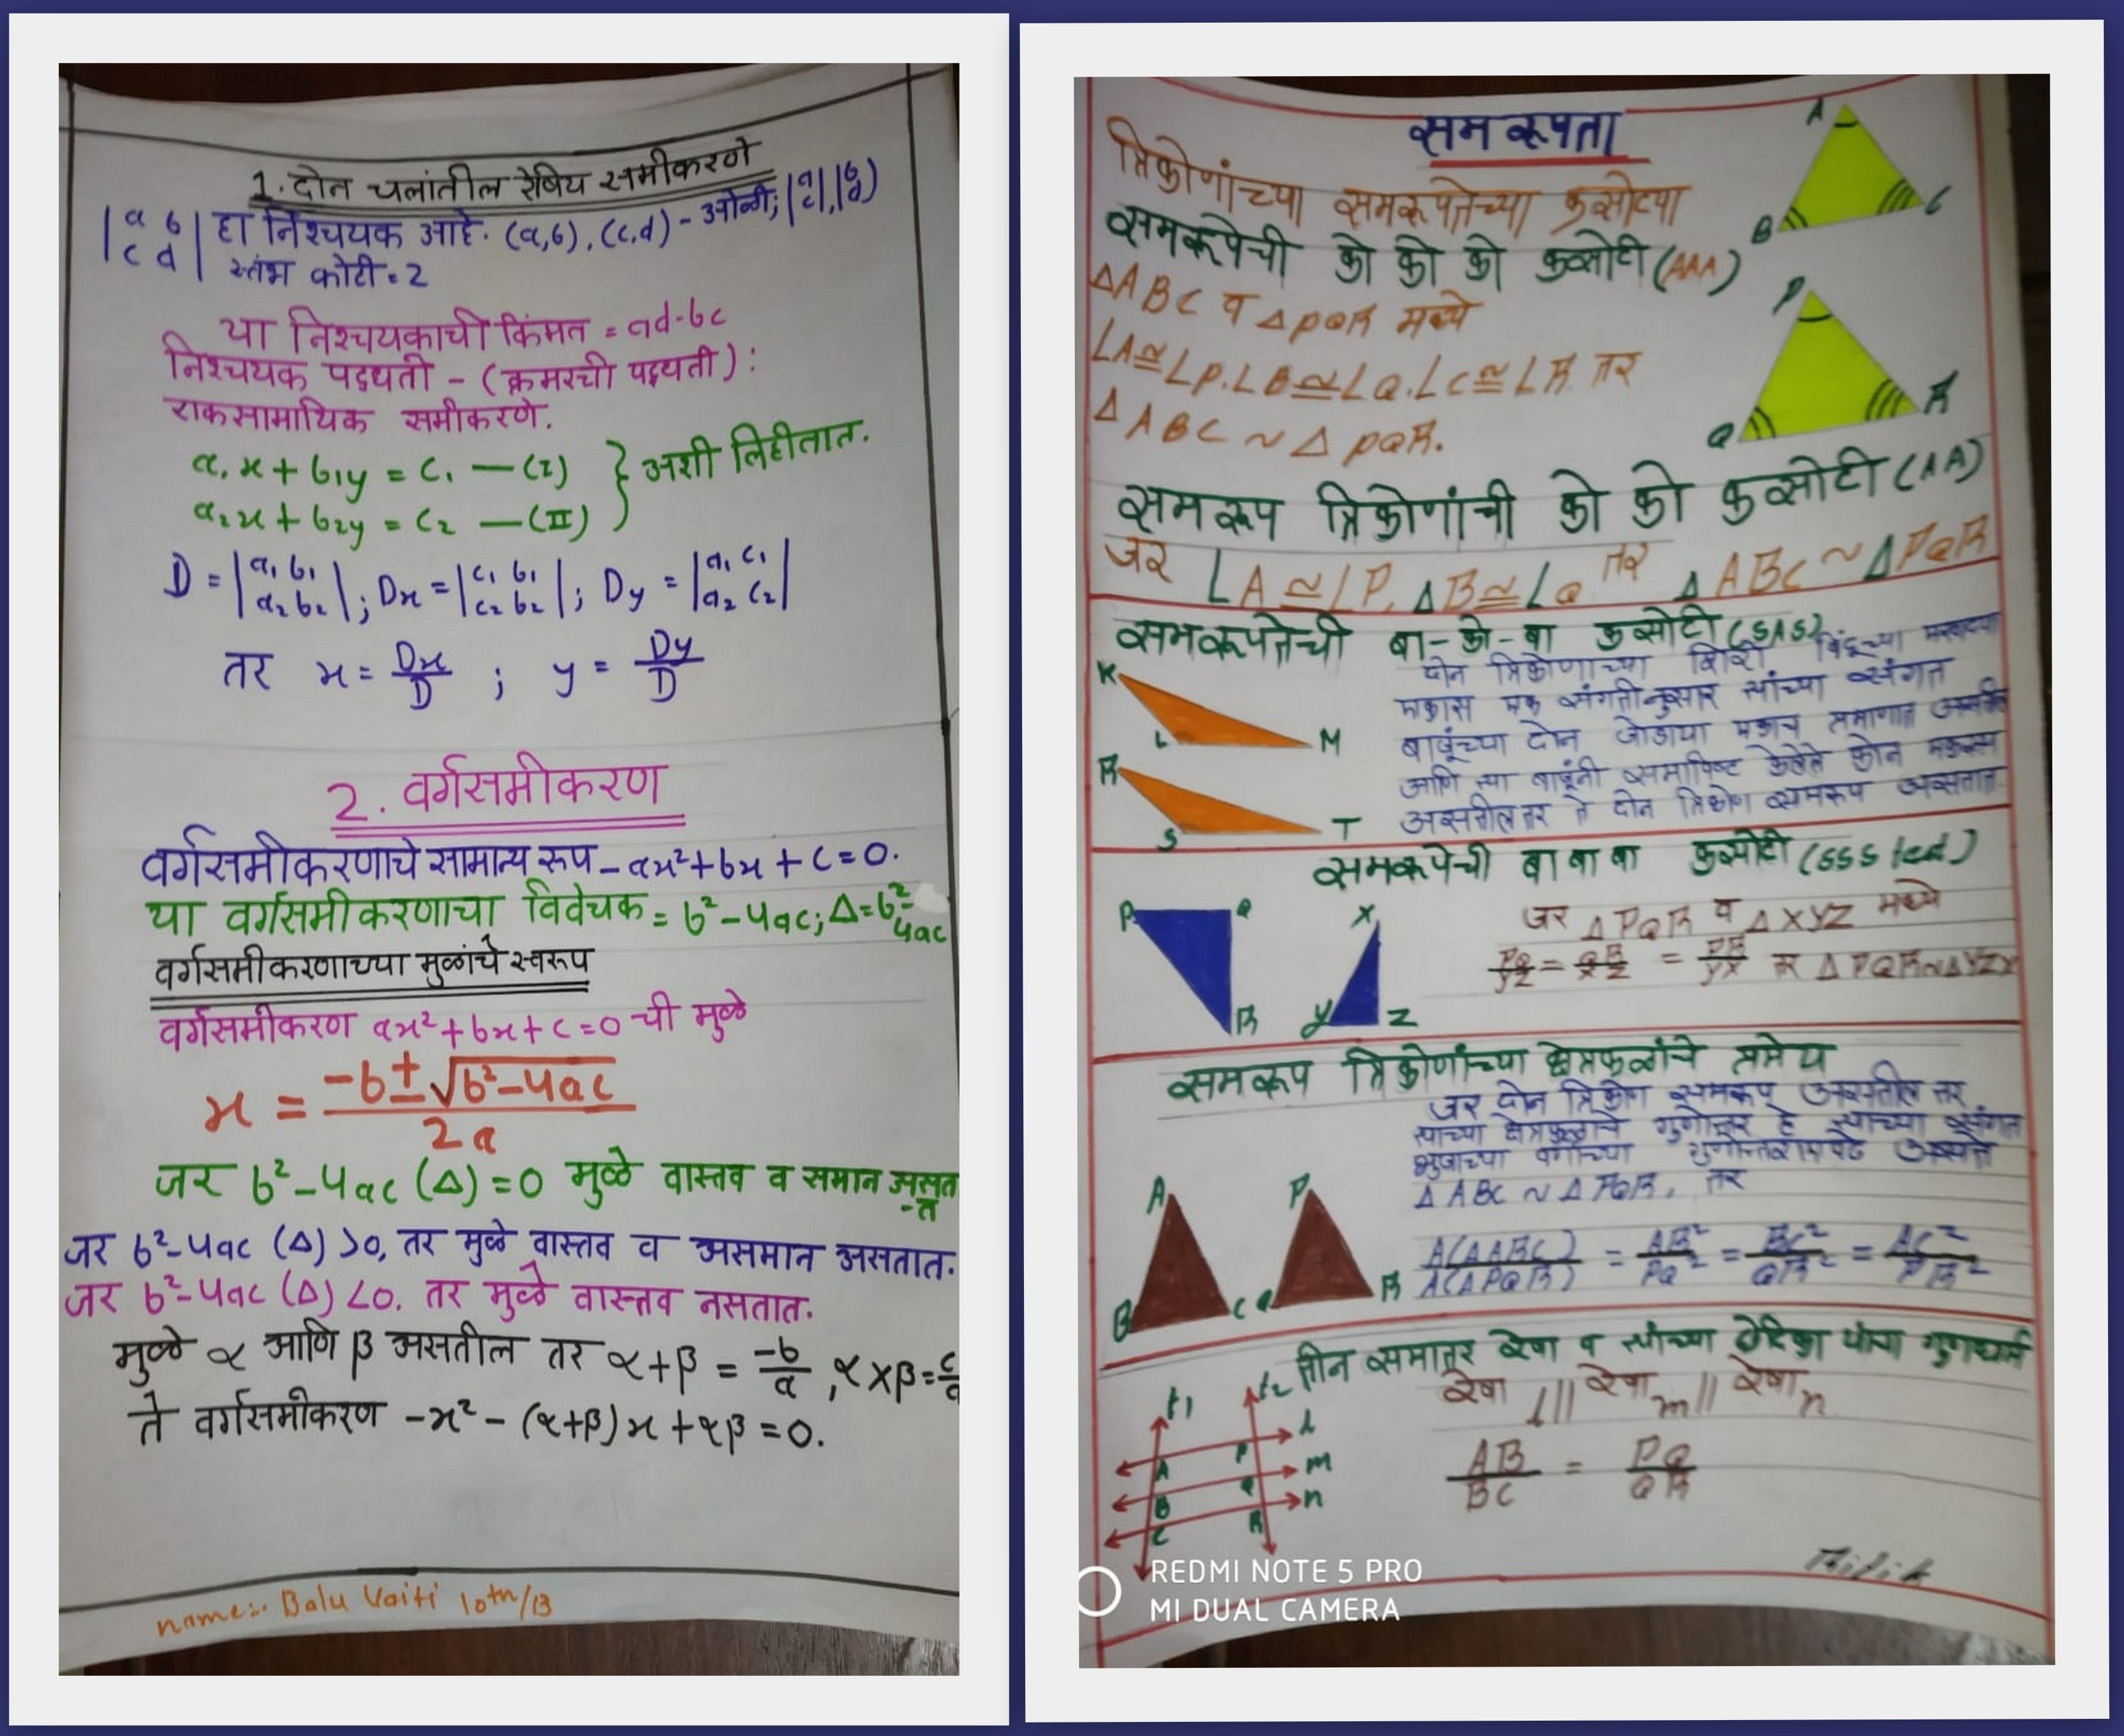 1. दोन चलांतील रेषिय समीकरणे
|a b| हा निश्चयक आहे. (a,b), (c,d) - ओळी; |a|,|b|
|c d| स्तंभ कोटी = 2 |c| |d|
या निश्चयकाची किंमत = ad-bc
निश्चयक पद्धती - (क्रमरची पद्धती):
एकसामायिक समीकरणे.
a₁x + b₁y = c₁ —(I) } अशी लिहीतात.
a₂x + b₂y = c₂ —(II)
D = |a₁ b₁| ; Dx = |c₁ b₁| ; Dy = |a₁ c₁|
|a₂ b₂| |c₂ b₂| |a₂ c₂|
तर x = Dx/D ; y = Dy/D
2. वर्गसमीकरण
वर्गसमीकरणाचे सामान्य रूप - ax²+bx+c=0.
या वर्गसमीकरणाचा विवेचक = b²-4ac; Δ=b²-4ac
वर्गसमीकरणाच्या मुळांचे स्वरूप
वर्गसमीकरण ax²+bx+c=0 ची मुळे
x = -b±√b²-4ac / 2a
जर b²-4ac (Δ)=0 मुळे वास्तव व समान असतात
जर b²-4ac (Δ)>0, तर मुळे वास्तव व असमान असतात.
जर b²-4ac (Δ)<0. तर मुळे वास्तव नसतात.
मुळे α आणि β असतील तर α+β = -b/a , α×β = c/a
ते वर्गसमीकरण -x² - (α+β)x + αβ = 0.
name:- Balu Vaiti 10th/B
समरूपता
त्रिकोणांच्या समरूपतेच्या कसोट्या
समरूपेची को को को कसोटी (AAA)
ΔABC व ΔPQR मध्ये
∠A≅∠P. ∠B≅∠Q. ∠C≅∠R. तर
ΔABC ~ ΔPQR.
A
B
C
P
Q
R
समरूप त्रिकोणांची को को कसोटी (AA)
जर ∠A≅∠P, ΔB≅∠Q तर ΔABC ~ ΔPQR
समरूपतेची बा-को-बा कसोटी (SAS)
दोन त्रिकोणाच्या शिरो बिंदूच्या
एकास एक संगतीनुसार त्यांच्या संगत
बाजूंच्या दोन जोड्या एकाच प्रमाणात असतील
आणि त्या बाजूंनी समाविष्ट केलेले कोन एकरूप
असतील तर ते दोन त्रिकोण समरूप असतात
K
L
M
R
S
T
समरूपेची बा बा बा कसोटी (SSS test)
जर ΔPQR व ΔXYZ मध्ये
PQ/YZ = QR/XZ = PR/YX तर ΔPQR~ΔYZX
P
Q
R
X
Y
Z
समरूप त्रिकोणांच्या क्षेत्रफळांचे प्रमेय
जर दोन त्रिकोण समरूप असतील तर
त्यांच्या क्षेत्रफळाचे गुणोत्तर हे त्यांच्या संगत
भुजाच्या वर्गाच्या असते
ΔABC ~ ΔPQR, तर
A(ΔABC)/A(ΔPQR) = AB²/PQ² = BC²/QR² = AC²/PR²
A
B
C
P
Q
R
तीन समांतर रेषा व त्यांच्या छेदिका यांचा गुणधर्म
रेषा l || रेषा m || रेषा n
AB/BC = PQ/QR
t1
t2
l
m
n
A
B
C
P
Q
R
REDMI NOTE 5 PRO
MI DUAL CAMERA